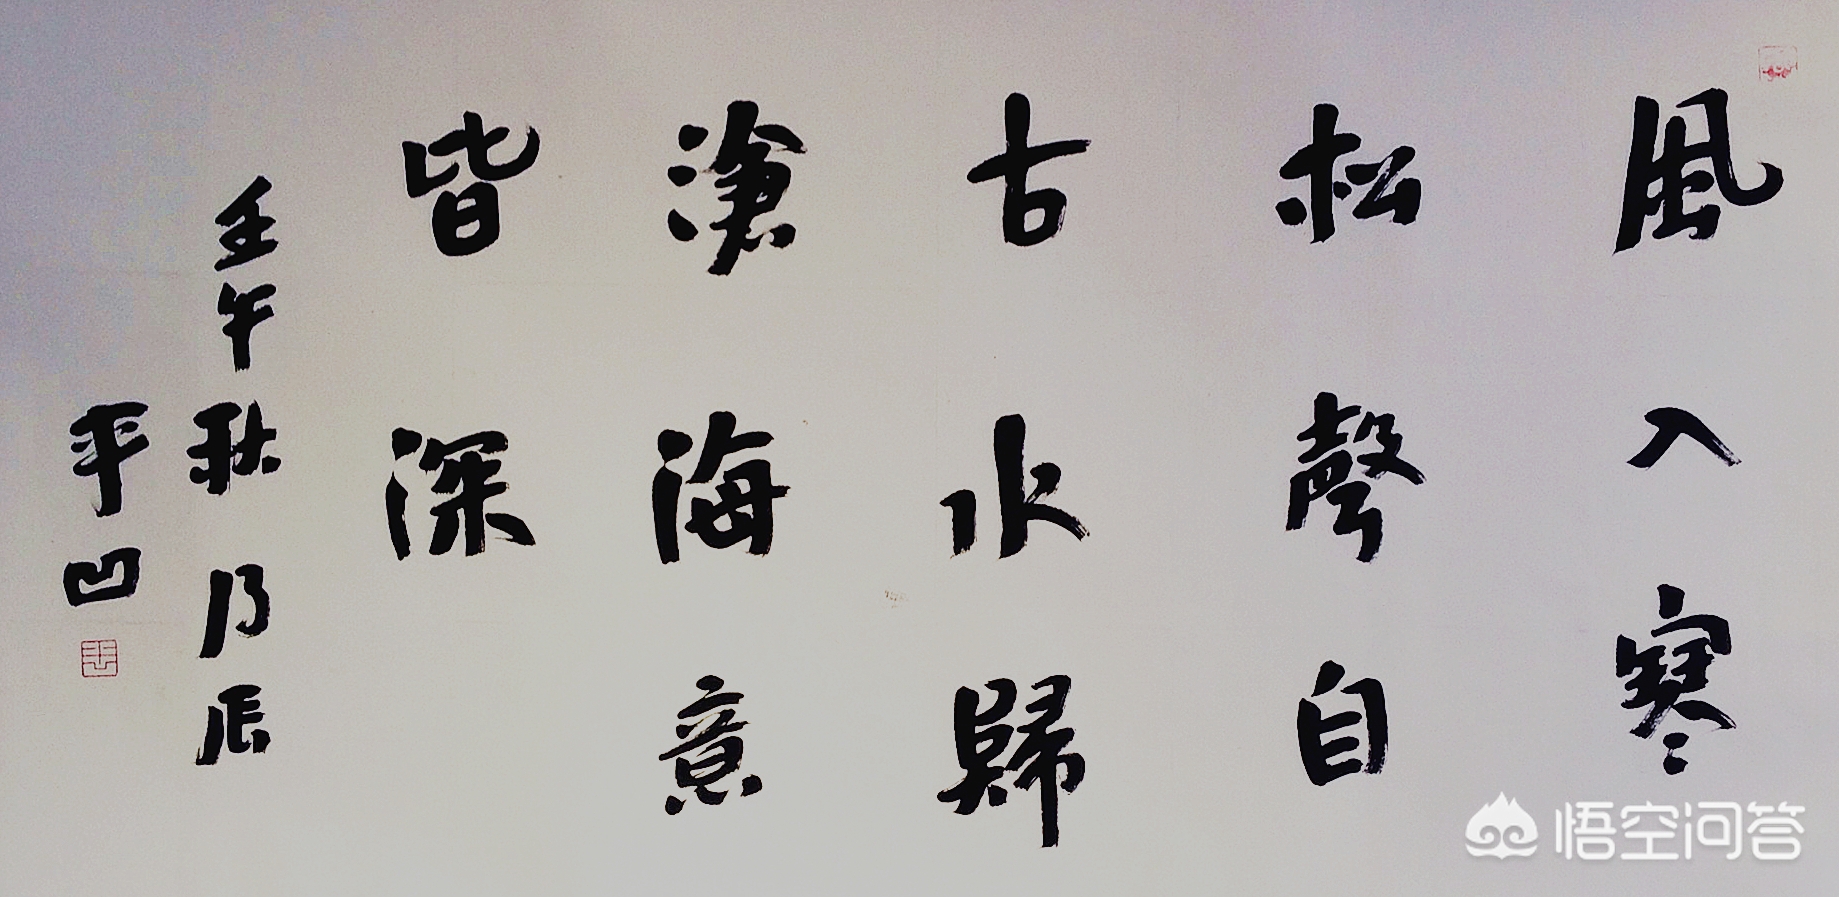 風入寒
松聲自
古水歸
滄海意
皆深
壬午秋乃辰
平凹
悟空问答